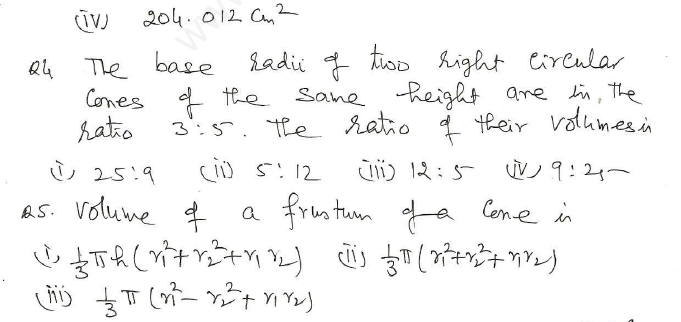 (iv) 204.012 Cm²
Q4 The base radii of two right circular
Cones of the same height are in the
ratio 3:5. The ratio of their volumes is
(i) 25:9 (ii) 5:12 (iii) 12:5 (iv) 9:25
Q5. Volume of a frustum of a Cone is
(i) 1/3 πh (r₁²+r₂²+r₁r₂) (ii) 1/3 π (r₁²+r₂²+r₁r₂)
(iii) 1/3 π (r₁²-r₂²+r₁r₂)